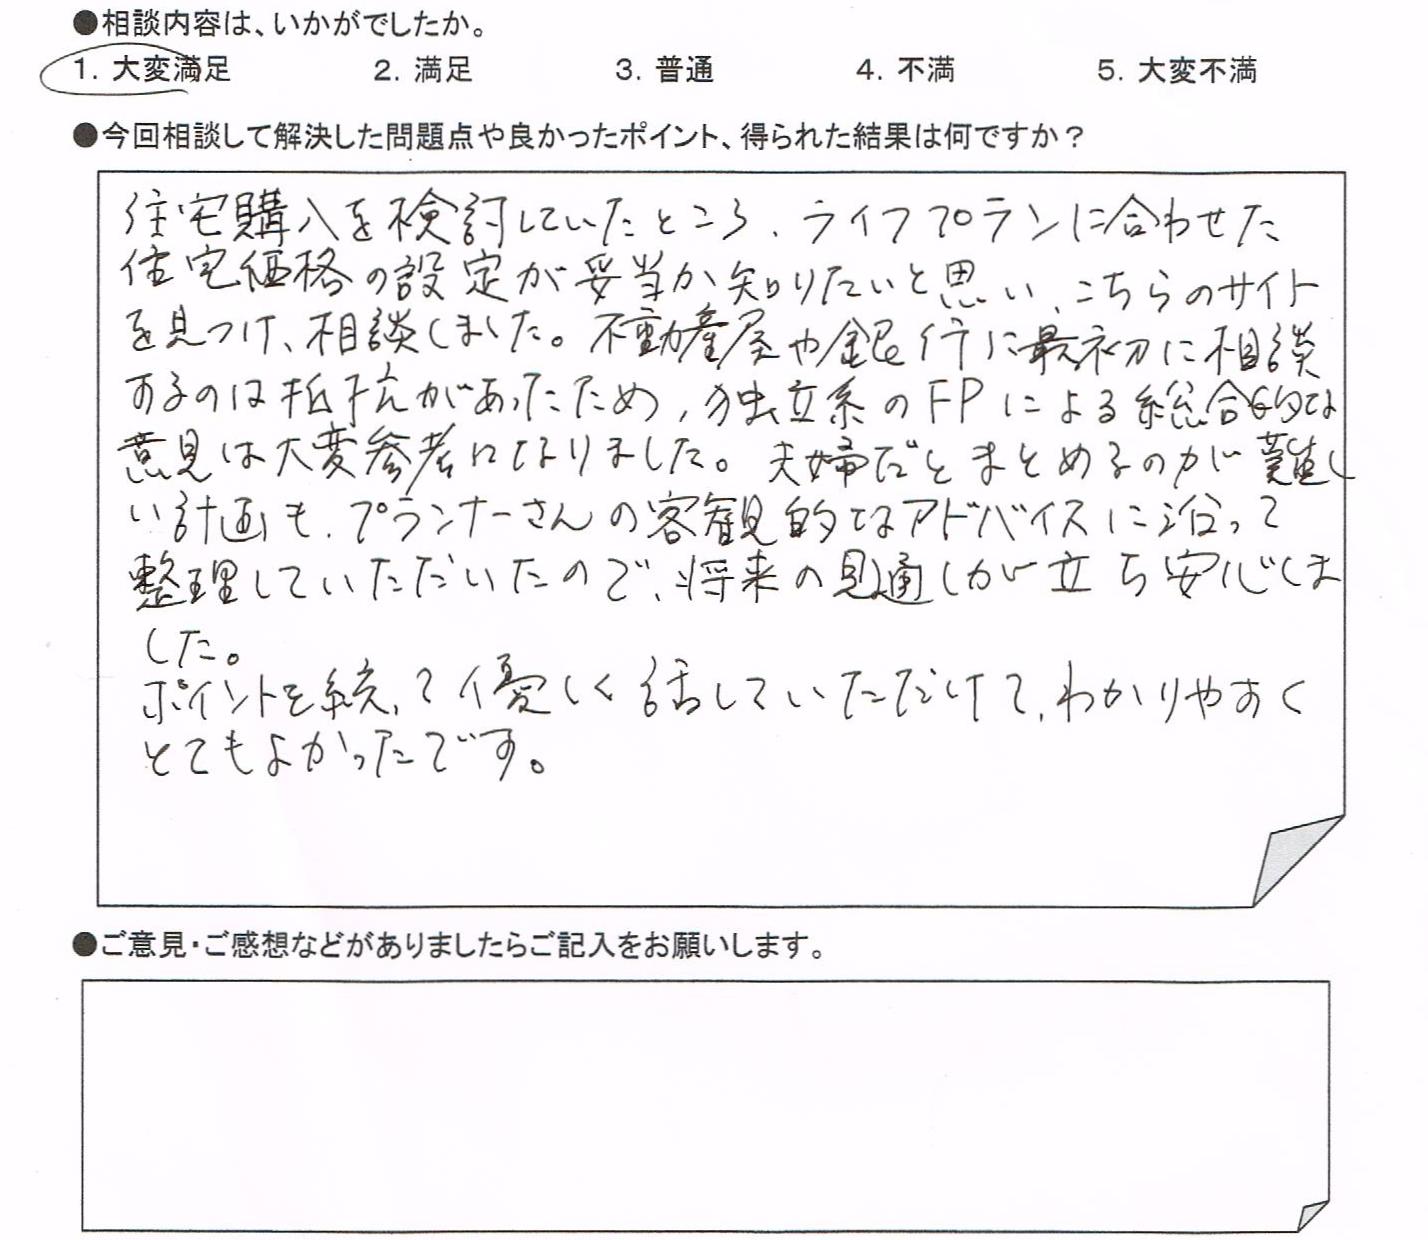 ●相談内容は、いかがでしたか。
1. 大変満足 2. 満足 3. 普通 4. 不満 5. 大変不満
●今回相談して解決した問題点や良かったポイント、得られた結果は何ですか？
住宅購入を検討していたところ、ライフプランに合わせた
住宅価格の設定が妥当か知りたいと思い、こちらのサイト
を見つけ、相談しました。不動産屋や銀行に最初に相談
するのは抵抗があったため、独立系のFPによる総合的な
意見は大変参考になりました。夫婦だとまとめるのが難し
い計画も、プランナーさんの客観的なアドバイスに沿って
整理していただいたので、将来の見通しが立ち安心しま
した。
ポイントを絞って優しく話していただけて、わかりやすく
とてもよかったです。
●ご意見・ご感想などがありましたらご記入をお願いします。